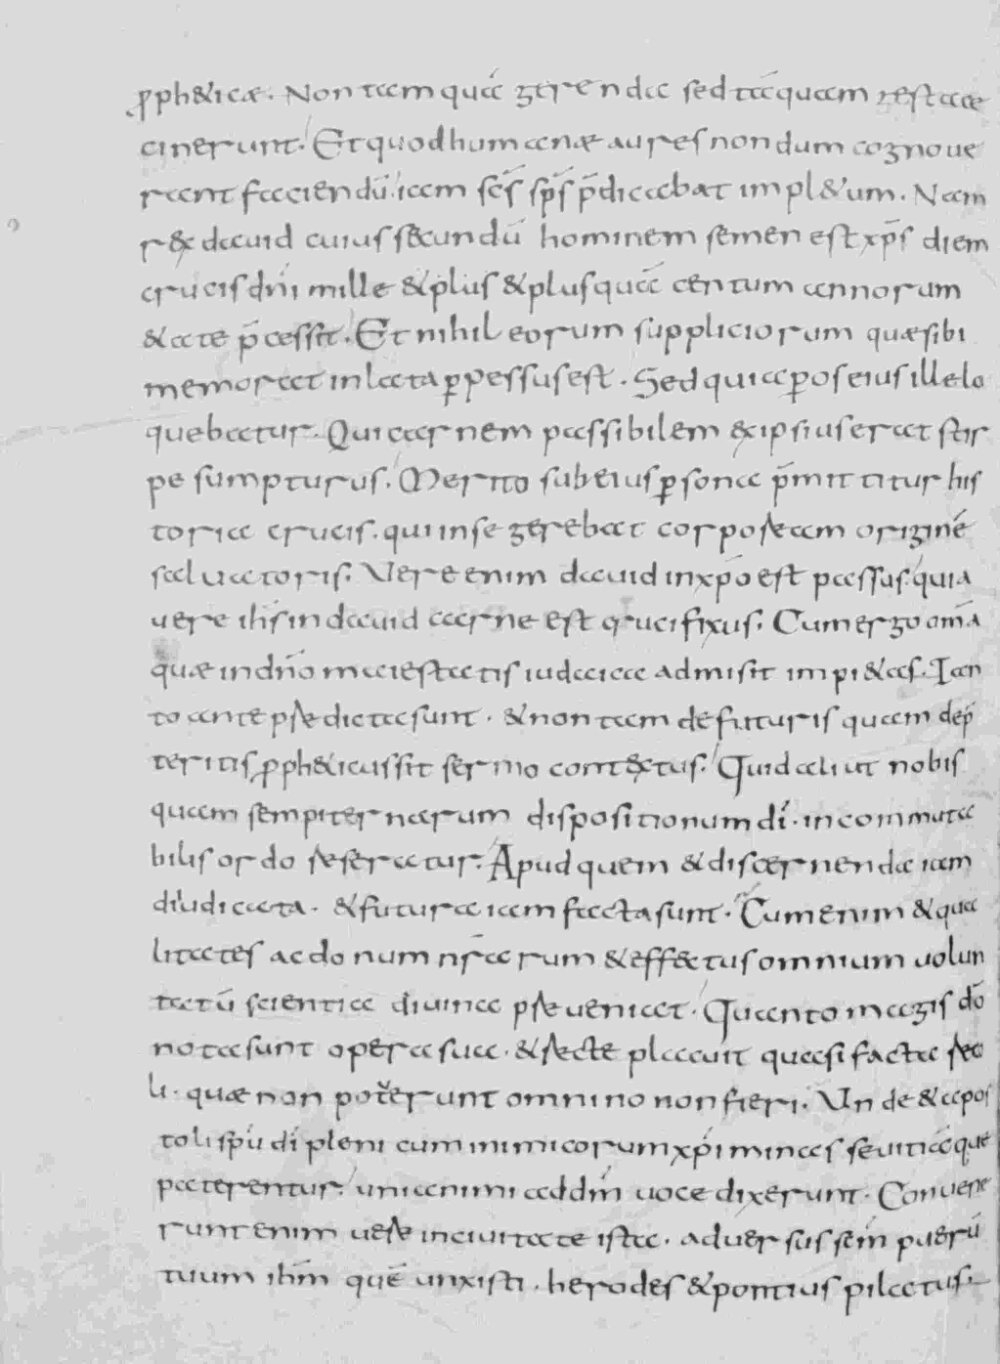 ꝓph&icæ. Non tam quę́ gerenda sed tāquam gesta ce
cinerunt. Et quod humanæ aures nondum cognoue
rant faciendū. iam sc̄s sp̄s p̄dicabat impl&um. Nam
r&x dauid cuius s&cundū hominem semen est xp̄s diem
crucis dn̄i mille & plus & plus quā centum annorum
& ate p̄cessit. Et nihil eorum suppliciorum quæ sibi
memorat inlata ꝑpessus est. Sed quia ꝑ os eius ille lo
quebatur. Qui carnem passibilem &x ipsius erat stir
pe sumpturus. Merito sub eius ꝑsona p̄mittitur his
toria crucis. qui in se gerebat corpoream originē
saluatoris. Vere enim dauid in xp̄o est passus. quia
uere ih̄s in dauid carne est crucifixus. Cum ergo om̄a
quæ in dn̄o maiestatis iudaica admisit impi&as. Tan
to ante predicta sunt. & non tam de futuris quam de p̄
teritis ꝓph&icus sit sermo cont&xtus. Quid aliut nobis
quam sempiternarum dispositionum dī. incommuta
bilis ordo reseratur. Apud quem & discernenda iam
diiudicata. & futura iam facta sunt. Cum enim & qua
litates acdonum nr̄arum & eff&ctus omnium uolun
tatū scientia diuina preueniat. Quanto magis dō
nota sunt opera sua. & recte placuit quasi facta reco
li. quæ non poterunt omnino non fieri. Vnde & apos
toli sp̄u dī pleni cum inimicorum xp̄i minas seuitiāque
paterentur. unianimi ad dm̄ uoce dixerunt. Conuene
runt enim uere in ciuitate ista. aduersus sc̄m puerū
tuum ih̄m quē unxisti. herodes & pontius pilatus.